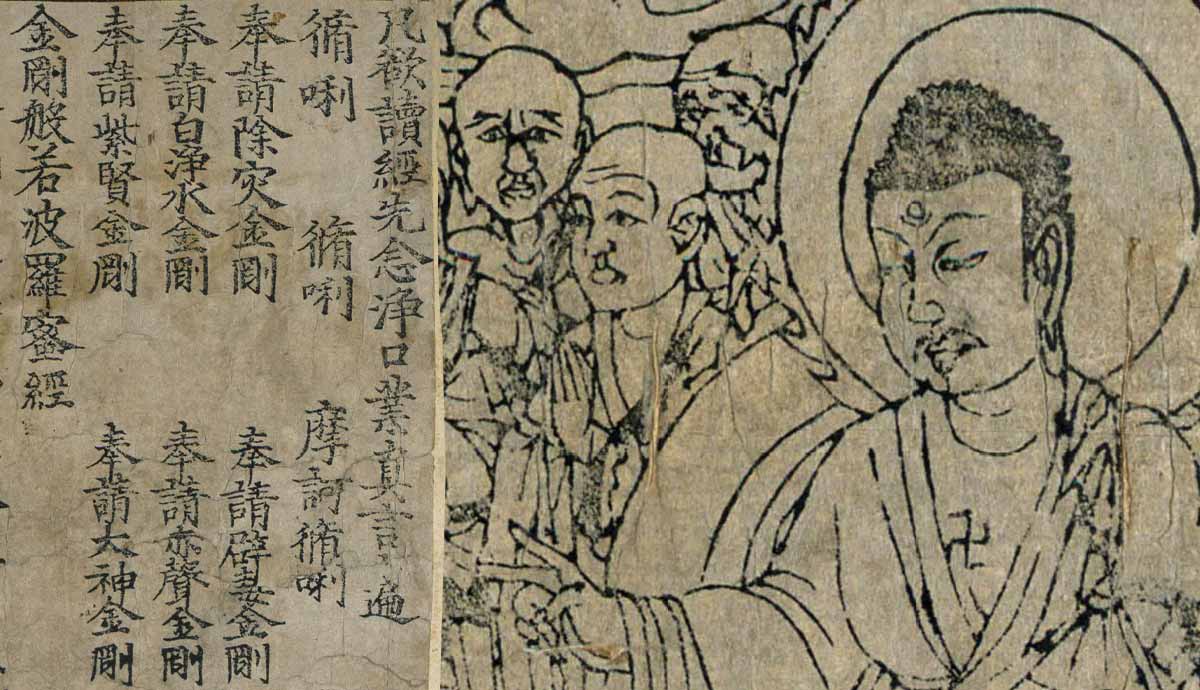 凡欲讀經先念淨口業真言一遍
脩唎 脩唎 摩訶脩唎
奉請除灾金剛 奉請辟毒金剛
奉請白淨水金剛 奉請赤聲金剛
奉請紫賢金剛 奉請大神金剛
金剛般若波羅蜜經
卍